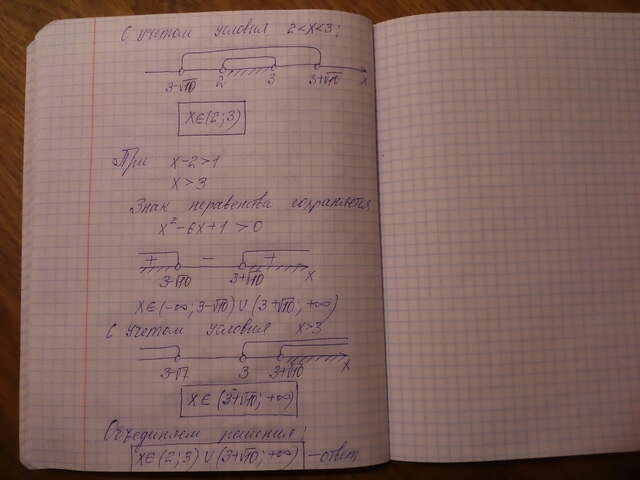 С учетом условия 2<x<3;
3-√10 2 3 3+√10 x
x∈(2;3)
При x-2>1
x>3
Знак неравенства сохраняется
x²-6x+1>0
+ - +
3-√10 3+√10 x
x∈(-∞;3-√10)∪(3+√10;+∞)
С учетом условия x>3
3-√7 3 3+√10 x
x∈(3+√10;+∞)
Объединяем решения:
x∈(2;3)∪(3+√10;+∞) -ответ